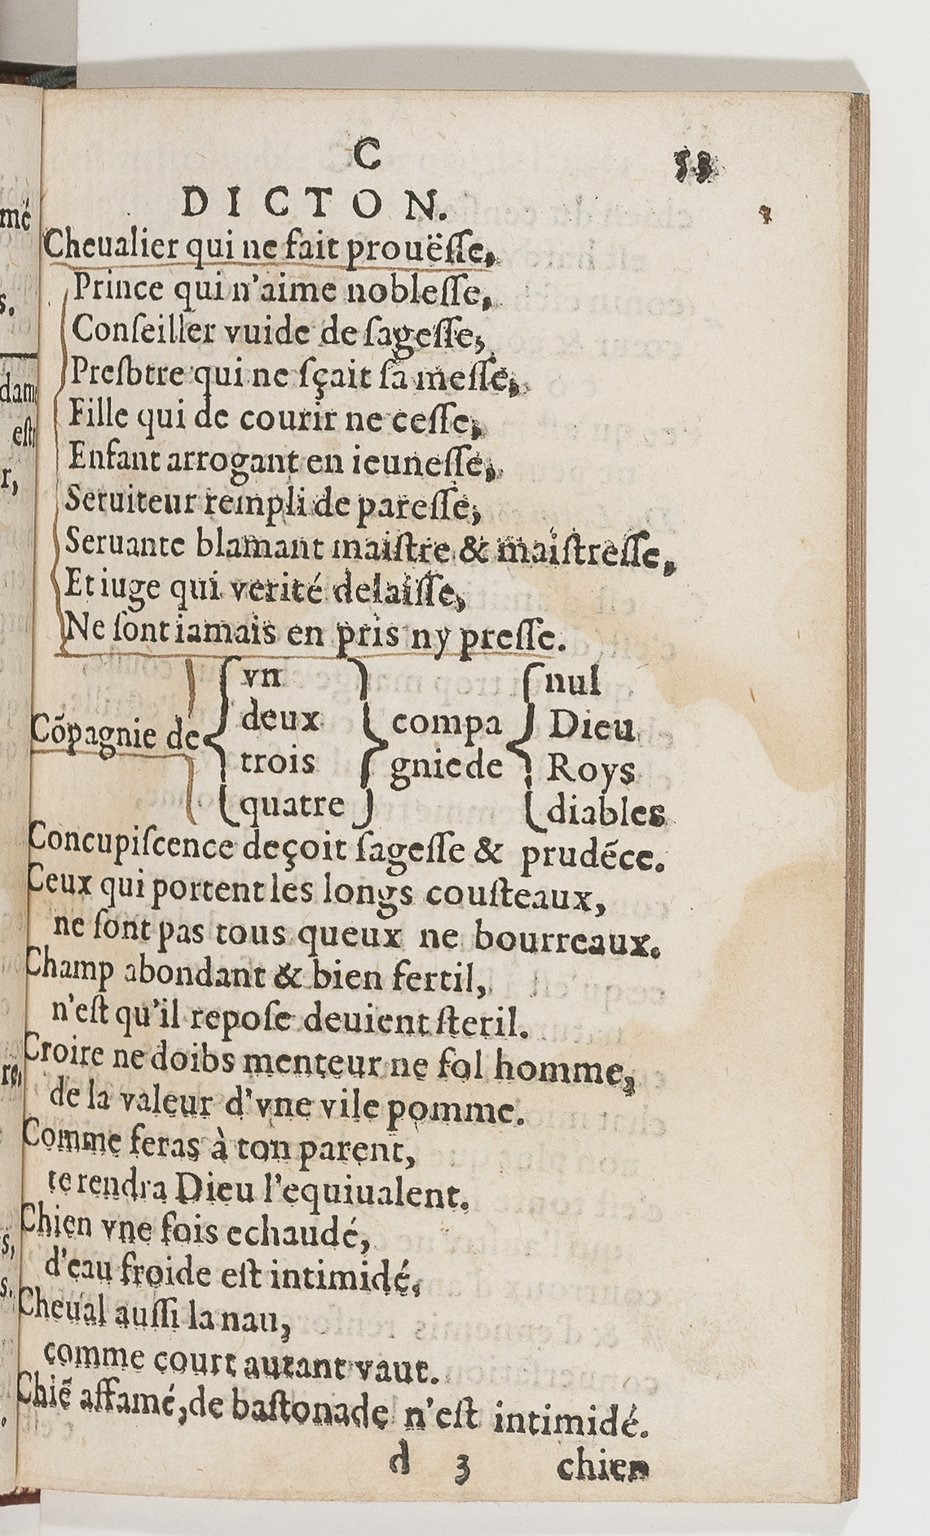 C 53
DICTON.
Cheualier qui ne fait prouësse,
Prince qui n'aime noblesse,
Conſeiller vuide de ſageſſe,
Preſbtre qui ne ſçait ſa meſſe,
Fille qui de courir ne ceſſe,
Enfant arrogant en ieuneſſe,
Seruiteur rempli de pareſſe,
Seruante blamant maiſtre & maiſtreſſe,
Et iuge qui verité delaiſſe,
Ne ſont iamais en pris ny preſſe.
vn nul
deux Dieu
Cõpagnie de compa
trois gnie de Roys
quatre diables
Concupiſcence deçoit ſageſſe & prudẽce.
Ceux qui portent les longs couſteaux,
ne ſont pas tous queux ne bourreaux.
Champ abondant & bien fertil,
n'eſt qu'il repoſe deuient ſteril.
Croire ne doibs menteur ne fol homme,
de la valeur d'vne vile pomme.
Comme feras à ton parent,
te rendra Dieu l'equiualent.
Chien vne fois echaudé,
d'eau froide eſt intimidé.
Cheual auſſi la nau,
comme court autant vaut.
Chiẽ affamé, de baſtonade n'eſt intimidé.
d 3 chien